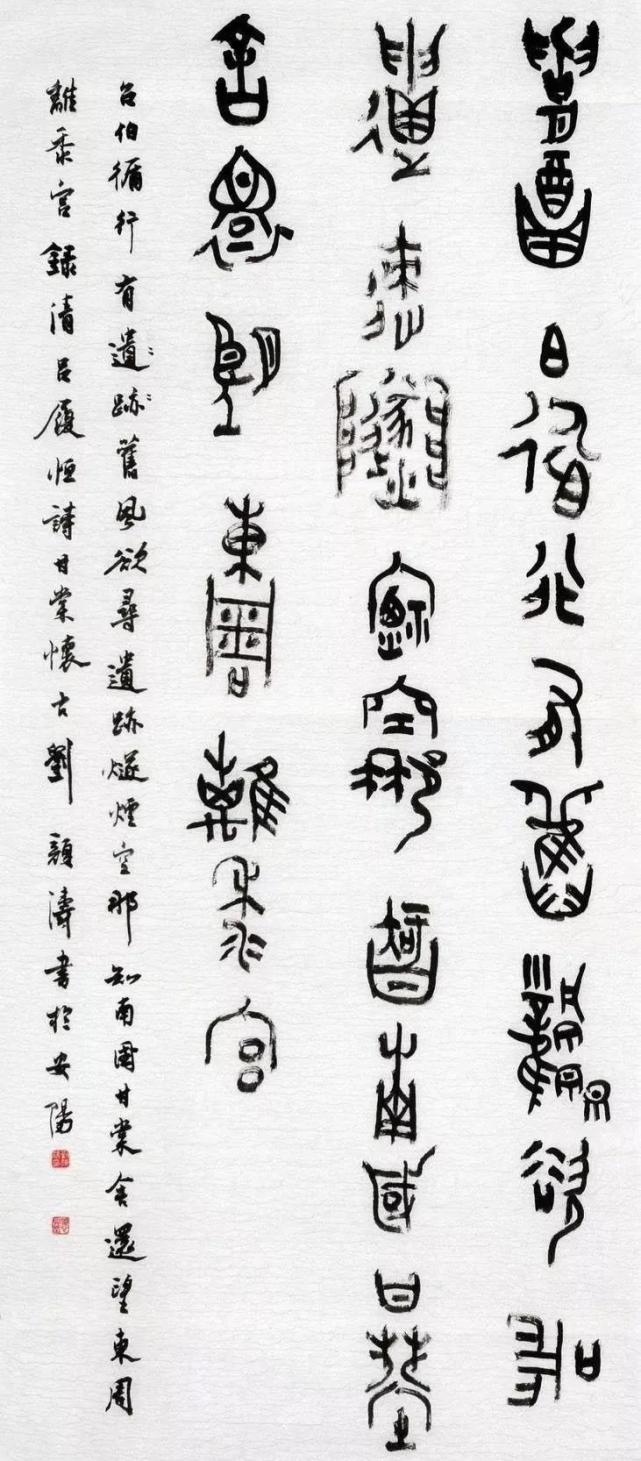 召伯循行有舊風欲尋
遺跡燧煙空那知南國甘棠
舍還望東周離黍宮
召伯循行有遺跡舊風欲尋遺跡燧煙空那知南國甘棠舍還望東周
離黍宮錄清呂履恒詩甘棠懷古劉顏濤書於安陽